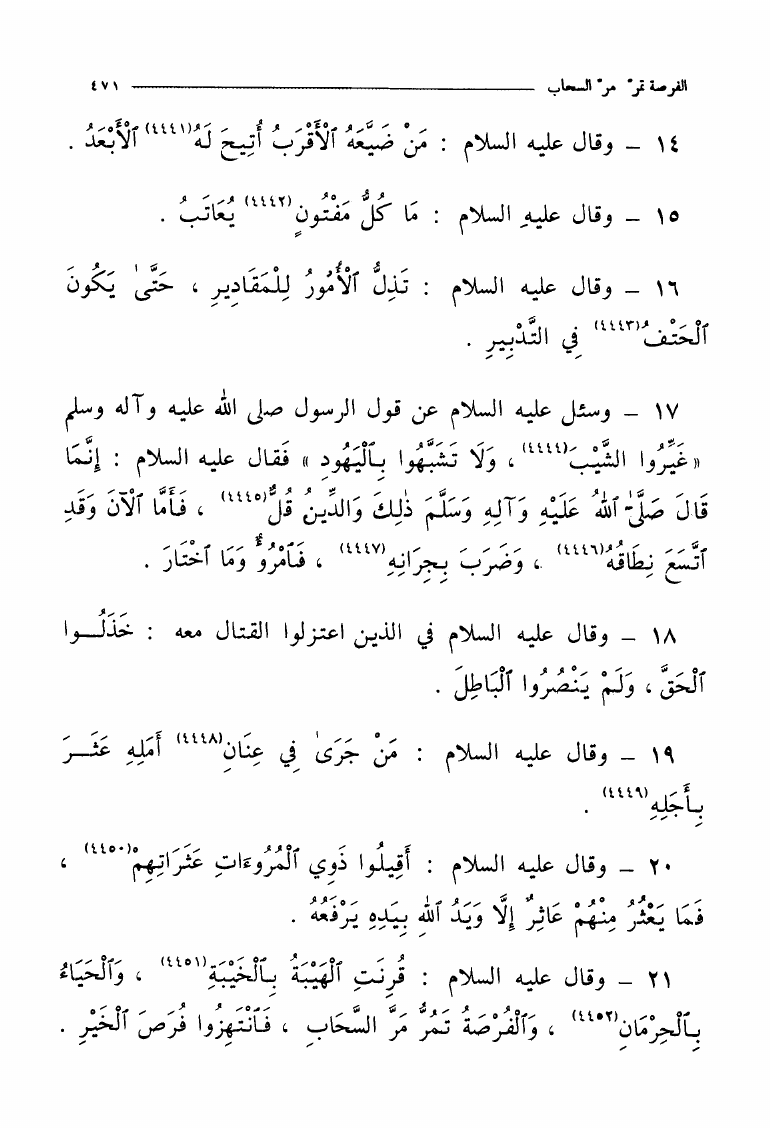 الفرصة تمرّ مرّ السحاب ٤٧١
١٤ – وقال عليه السلام : مَنْ ضَيَّعَهُ ٱلْأَقْرَبُ أُتِيحَ لَهُ(٤٤٤١) ٱلْأَبْعَدُ .
١٥ – وقال عليهِ السلام : مَا كُلُّ مَفْتُونٍ(٤٤٤٢) يُعَاتَبُ .
١٦ – وقال عليه السلام : تَذِلُّ ٱلْأُمُورُ لِلْمَقَادِيرِ ، حَتَّىٰ يَكُونَ
ٱلْحَتْفُ(٤٤٤٣) فِي التَّدْبِيرِ .
١٧ – وسئل عليه السلام عن قول الرسول صلى الله عليه وآله وسلم
« غَيِّرُوا الشَّيْبَ(٤٤٤٤) ، وَلَا تَشَبَّهُوا بِٱلْيَهُودِ » فَقال عليه السلام : إِنَّمَا
قَالَ صَلَّىٰ ٱللهُ عَلَيْهِ وَآلِهِ وَسَلَّمَ ذٰلِكَ وَالدِّينُ قُلٌّ(٤٤٤٥) ، فَأَمَّا ٱلْآنَ وَقَدِ
ٱتَّسَعَ نِطَاقُهُ(٤٤٤٦) ، وَضَرَبَ بِجِرَانِهِ(٤٤٤٧) ، فَٱمْرُؤٌ وَمَا ٱخْتَارَ .
١٨ – وقال عليه السلام في الذين اعتزلوا القتال معه : خَذَلُــوا
ٱلْحَقَّ ، وَلَمْ يَنْصُرُوا ٱلْبَاطِلَ .
١٩ – وقال عليه السلام : مَنْ جَرَىٰ فِي عِنَانِ(٤٤٤٨) أَمَلِهِ عَثَــرَ
بِأَجَلِهِ(٤٤٤٩) .
٢٠ – وقال عليه السلام : أَقِيلُوا ذَوِي ٱلْمُرُوءَاتِ عَثَرَاتِهِمْ(٤٤٥٠) ،
فَمَا يَعْثُرُ مِنْهُمْ عَاثِرٌ إِلَّا وَيَدُ ٱللهِ بِيَدِهِ يَرْفَعُهُ .
٢١ – وقال عليه السلام : قُرِنَتِ ٱلْهَيْبَةُ بِٱلْخَيْبَةِ(٤٤٥١) ، وَٱلْحَيَاءُ
بِٱلْحِرْمَانِ(٤٤٥٢) ، وَٱلْفُرْصَةُ تَمُرُّ مَرَّ السَّحَابِ ، فَٱنْتَهِزُوا فُرَصَ ٱلْخَيْرِ .